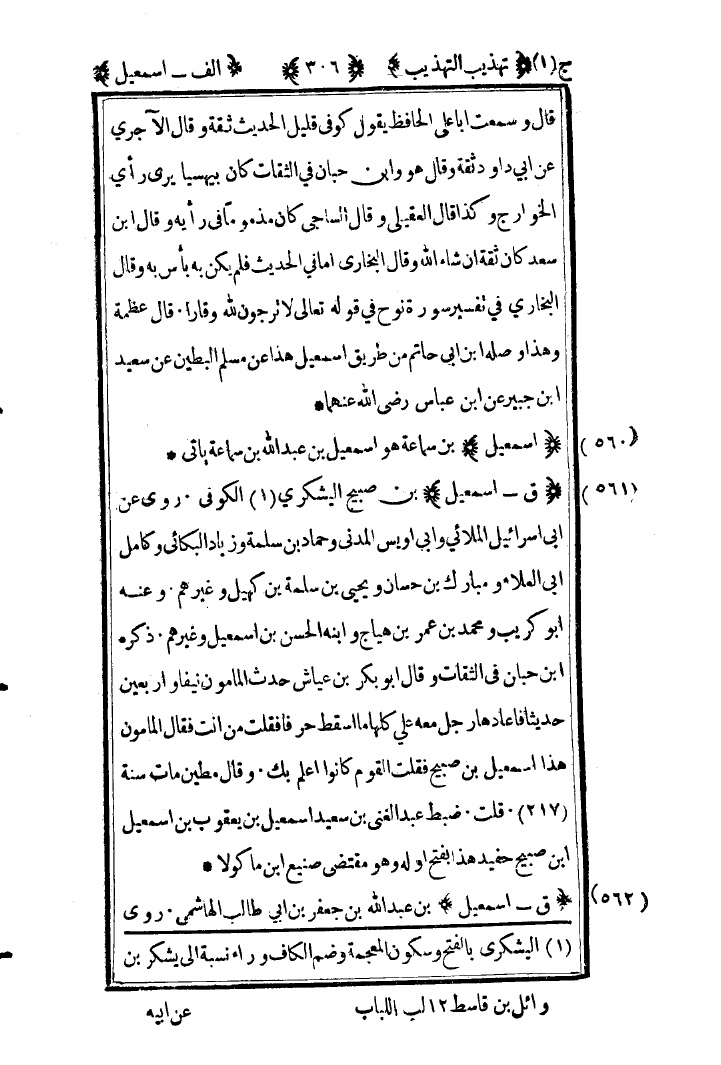 ج(١) ﴿ تهذيب التهذيب ﴾ ﴿ ٣٠٦ ﴾ ﴿ الف ــ اسمعيل ﴾
قال و سمعت ابا على الحافظ يقول كوفى قليل الحديث ثقة و قال الآجري
عن ابي داود ثقة و قال هو و ابن حبان في الثقات كان بيهسيا يرى رأي
الخوارج و كذا قال العقيلي و قال الساجى كان مذموما فى رأيه و قال ابن
سعد كان ثقة ان شاء الله و قال البخارى اما في الحديث فلم يكن به بأس به و قال
البخاري في تفسير سورة نوح في قوله تعالى لا ترجون لله وقارا ٠ قال عظمة
و هذا وصله ابن ابى حاتم من طريق اسمعيل هذا عن مسلم البطين عن سعيد
ابن جبير عن ابن عباس رضى الله عنهما *
(٥٦٠) ﴿ اسمعيل ﴾ بن سماعة هو اسمعيل بن عبد الله بن سماعة ياتى *
(٥٦١) ﴿ ق ــ اسمعيل ﴾ بن صبيح اليشكري (١) الكوفى ٠ روى عن
ابى اسرائيل الملائي و ابى اويس المدنى و حماد بن سلمة و زياد البكائى و كامل
ابى العلاء و مبارك بن حسان و يحيى بن سلمة بن كهيل و غيرهم ٠ و عنه
ابو كريب و محمد بن عمر بن هياج و ابنه الحسن بن اسمعيل و غيرهم ٠ ذكره
ابن حبان فى الثقات و قال ابو بكر بن عياش حدث المامون نيفا و اربعين
حديثا فاعادها رجل معه علي كلها ما اسقط حرفا فقلت من انت فقال المامون
هذا اسمعيل بن صبيح فقلت القوم كانوا اعلم بك ٠ و قال مطين مات سنة
(٢١٧) ٠ قلت ٠ ضبط عبد الغنى بن سعيد اسمعيل بن يعقوب بن اسمعيل
ابن صبيح حفيد هذا بفتح اوله و هو مقتضى صنيع ابن ماكولا *
(٥٦٢) ﴿ ق ــ اسمعيل ﴾ بن عبد الله بن جعفر بن ابي طالب الهاشمي ٠ روى
(١) اليشكرى بالفتح و سكون المعجمة و ضم الكاف و راء نسبة الى يشكر بن
وائل بن قاسط ١٢ لب اللباب
عن ابيه